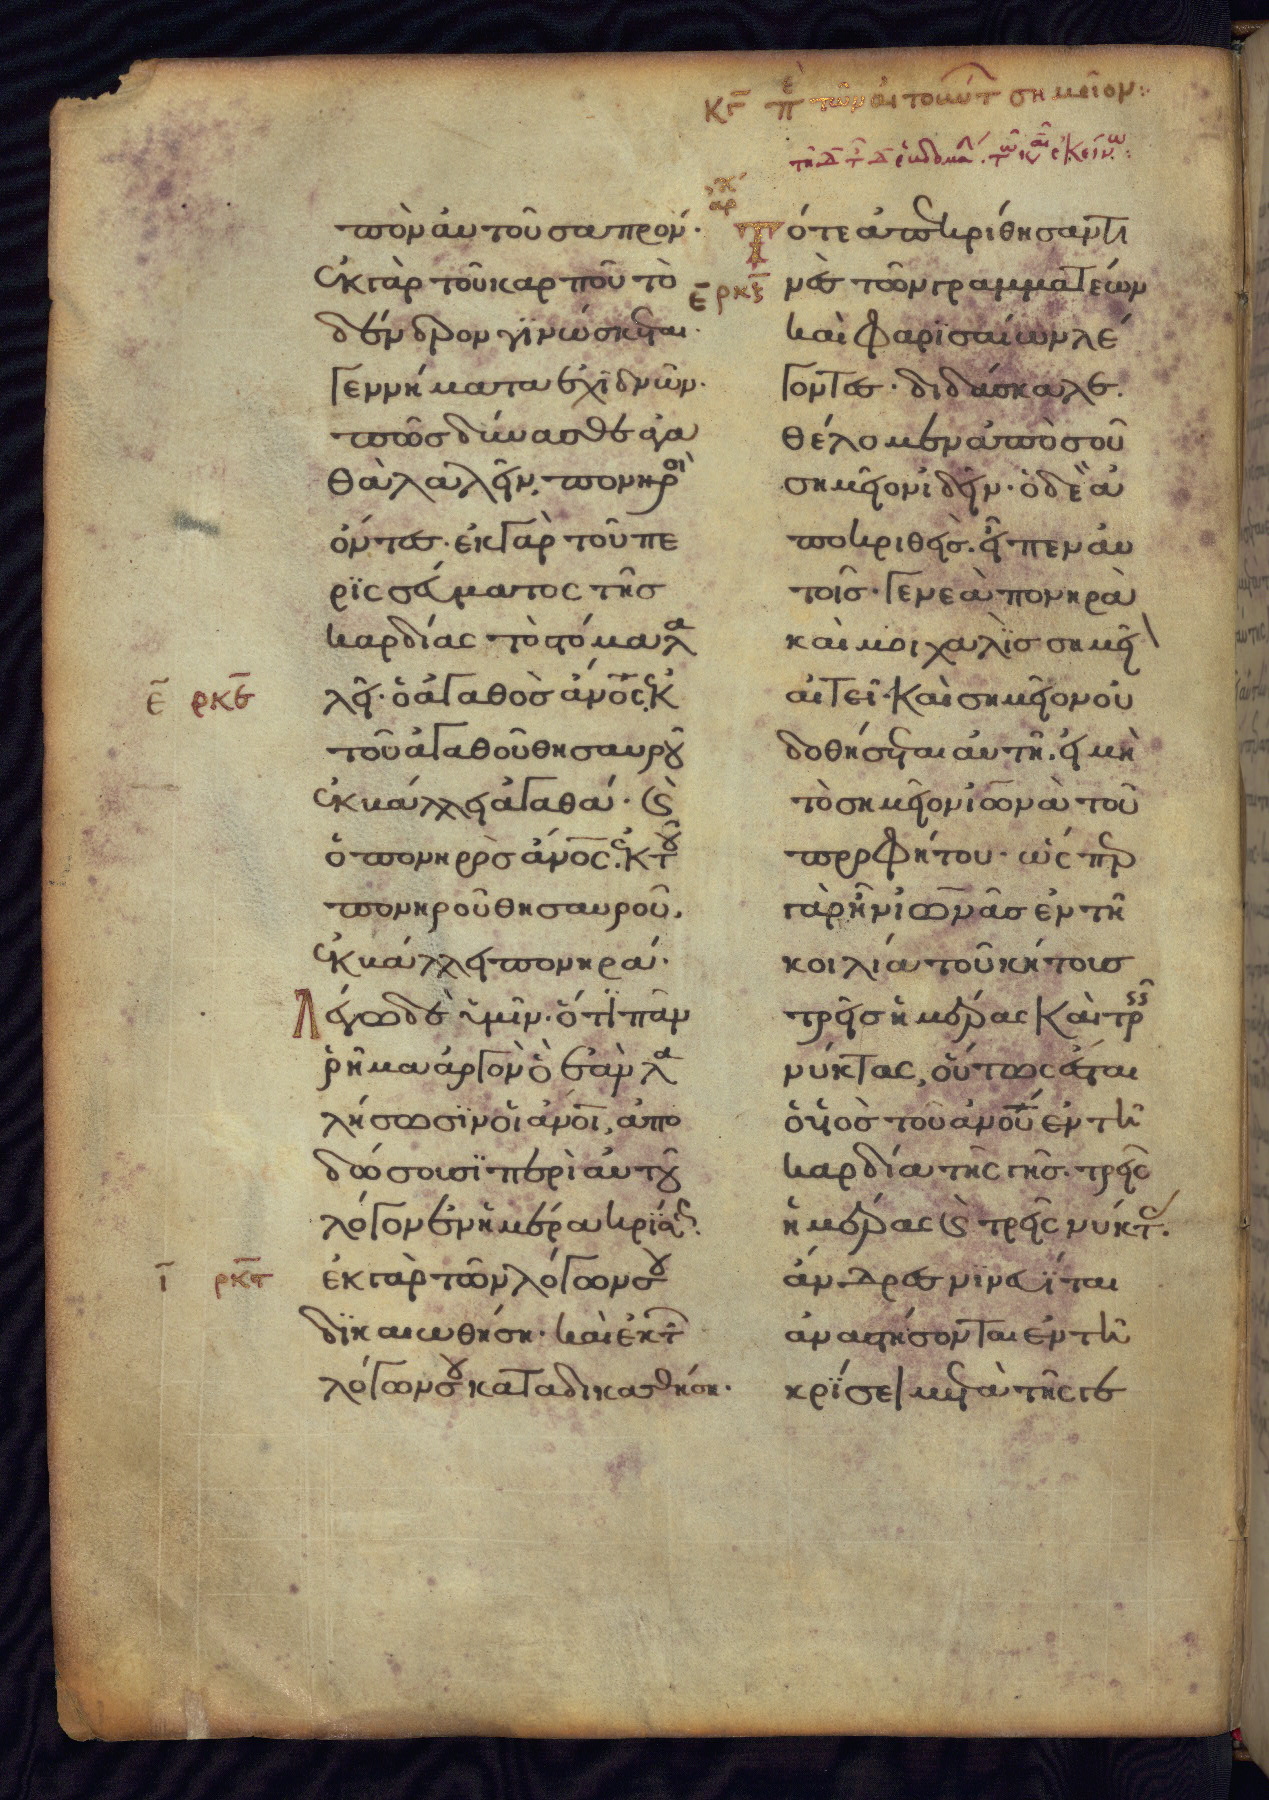 κγ̅ π̅ε̅ τῶν αἰτούντ σημεῖον:
τῆ δ̅ τ̅ δ̅ ἑβδομά. τῶ και ἐκείνω:
πὸν αὐτοῦ σαπρόν·
ἐκ γὰρ τοῦ καρποῦ τὸ
δένδρον γϊνώσκεται·
Γεννήματα ἐχϊδνῶν·
πῶς δύνασθε ἀγα
θὰ λαλεῖν, πονηροὶ
ὄντες· ἐκ γὰρ τοῦ πε
ρϊσσεύματος τῆς
καρδίας τὸ στόμα λα
ε̅ ρκε̅ λεῖ· ὁ ἀγαθὸς ἄνο̅ς ἐκ
τοῦ ἀγαθοῦ θησαυροῦ
ἐκβάλλει ἀγαθά· καὶ
ὁ πονηρὸς ἄνο̅ς ἐκ τοῦ
πονηροῦ θησαυροῦ,
ἐκβάλλει πονηρά·
Λέγω δὲ ὑμῖν· ὅτϊ πᾶν
ῥῆμα ἀργὸν ὃ ἐὰν λα
λήσωσϊν οἱ ἄνο̅ι, ἀπο
δώσουσϊ περὶ αὐτοῦ
λόγον ἐν ἡμέρα κρίσεως.
ι̅ ρκς̅ ἐκ γὰρ τῶν λόγων σου
δϊκαιωθήση· καὶ ἐκ τ̅
λόγων σου καταδικασθήση·
αρ
Τότε ἀπεκρίθησαν τι
ε̅ ρκζ̅ νὲς τῶν γραμματέων
καὶ φαρϊσαίων λέ
γοντες· διδάσκαλε.
θέλομεν ἀπὸ σοῦ
σημεῖον ἰδεῖν· ὁ δὲ ἀ
ποκριθεὶς. εἶπεν αὐ
τοῖς· Γενεὰ πονηρὰ
καὶ μοιχαλὶς σημεῖ
αιτεῖ· Καὶ σημεῖον οὐ
δοθήσεται αὐτῆ. εἰ μὴ
τὸ σημεῖον ἰωνὰ τοῦ
προφήτου· ὥσπερ
γὰρ ἦν ἰωνᾶς ἐν τῆ
κοιλία τοῦ κήτους
τρεῖς ἡμέρας Καὶ τρεῖς
νύκτας, οὕτως ἔσται
ὁ υἱὸς τοῦ ἀνο̅υ ἐν τῆ
καρδία τῆς γῆς. τρεῖς
ἡμέρας καὶ τρεῖς νύκτας.
ἄνδρες νϊνευῖται
ἀναστήσονται ἐν τῆ
κρίσει μετὰ τῆς γε